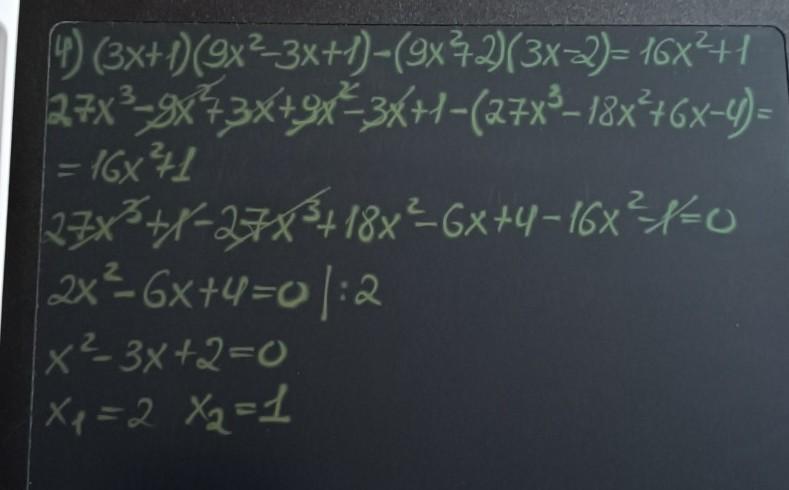 4) (3x+1)(9x²-3x+1)-(9x²+2)(3x-2)=16x²+1
27x³-9x²+3x+9x²-3x+1-(27x³-18x²+6x-4)=
=16x²+1
27x³+1-27x³+18x²-6x+4-16x²-1=0
2x²-6x+4=0 |:2
x²-3x+2=0
x₁=2 x₂=1